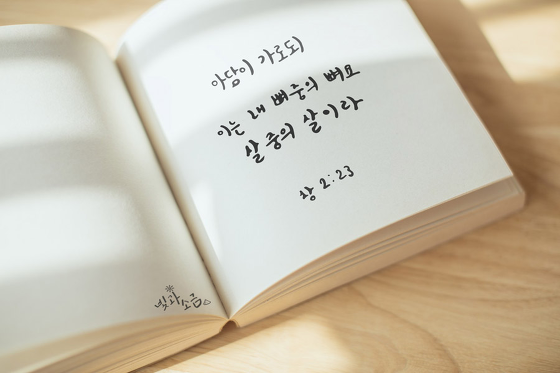 아담이 가로되
이는 내 뼈중의 뼈요
살 중의 살이라
창 2:23
빛과 소금